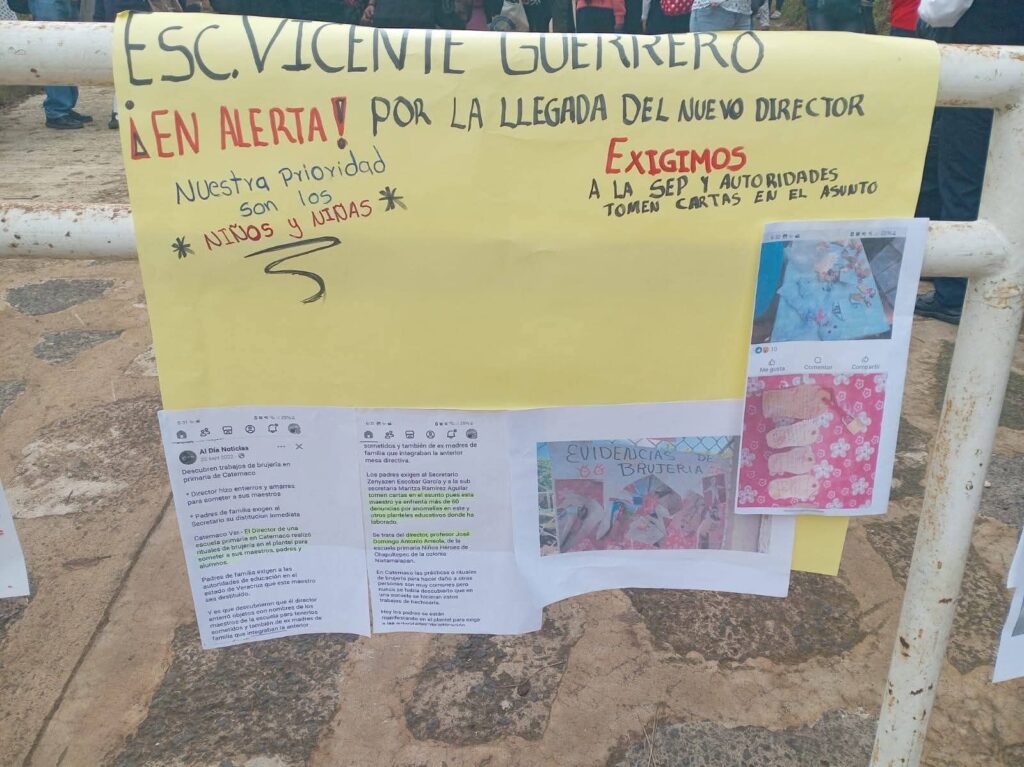 ESC. VICENTE GUERRERO
¡EN ALERTA! POR LA LLEGADA DEL NUEVO DIRECTOR
NUESTRA PRIORIDAD
SON LOS
* NIÑOS Y NIÑAS *
EXIGIMOS
A LA SEP Y AUTORIDADES
TOMEN CARTAS EN EL ASUNTO
Al Día Noticias
Descubren trabajos de brujería en
primaria de Catemaco
• Director hizo entierros y amarres
para someter a sus maestros
• Padres de familia exigen al
Secretario su distitucion inmediata
Catemaco Ver.- El Director de una
escuela primaria en Catemaco realizó
rituales de brujería en el plantel para
someter a sus maestros, padres y
alumnos.
Padres de familia exigen a las
autoridades de educación en el
estado de Veracruz que este maestro
sea destituido.
Y es que descubrieron que el director
enterró objetos con nombres de los
maestros de la escuela para tenerlos
sometidos y también de ex madres de
familia que integraban la anterior
sometidos y también de ex madres de
familia que integraban la anterior
mesa directiva.
Los padres exigen al Secretario
Zenyazen Escobar García y a la sub
secretaria Maritza Ramírez Aguilar
tomen cartas en el asunto pues este
maestro ya enfrenta más de 60
denuncias por anomalías en este y
otros planteles educativos donde ha
laborado.
Se trata del director, profesor José
Domingo Antonio
de
la escuela primaria Niños Héroes de
Chapultepec de la colonia
En Catemaco las prácticas o rituales
de brujería para hacer daño a otras
personas son muy comunes pero
nunca se había descubierto que en
una escuela se hicieran estos
trabajos de hechicería.
Hoy los padres se están
manifestando en el plantel para exigir
EVIDENCIAS DE
BRUJERIA
10
Me gusta
Comentar
Compartir